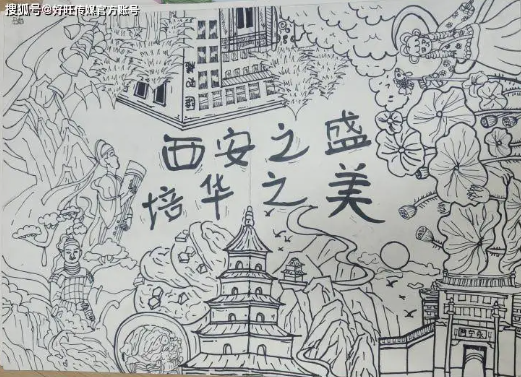 搜狐号@好旺传媒官方账号
西安之盛
培华之美